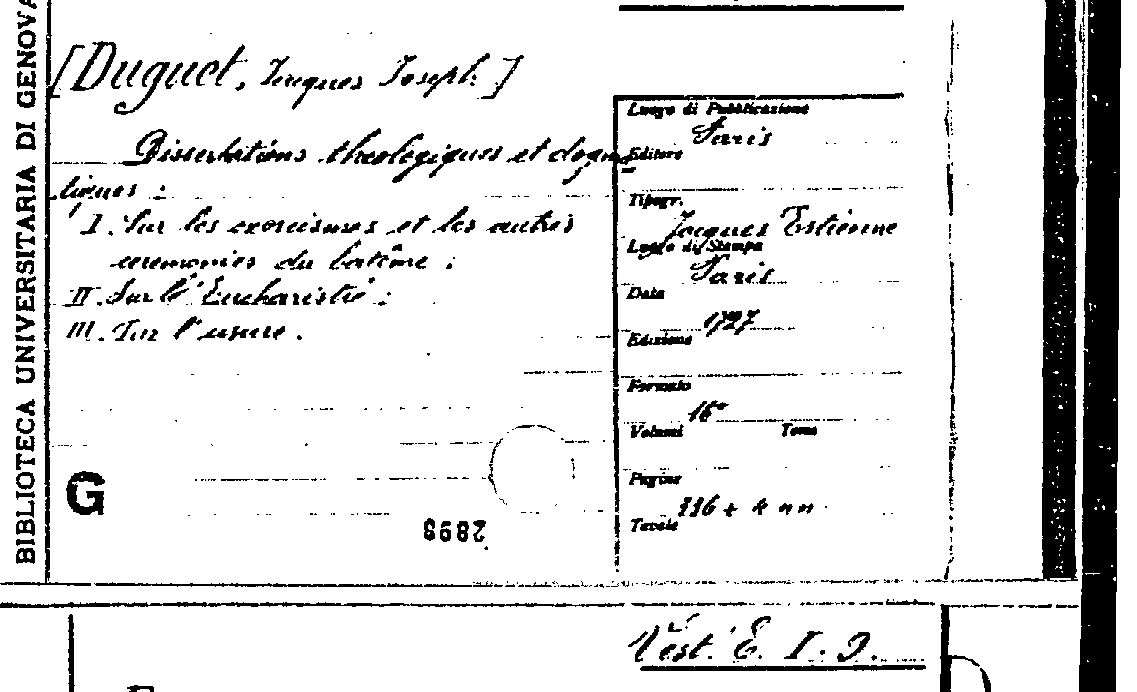 BIBLIOTECA UNIVERSITARIA DI GENOVA
[Duguet, Jacques Joseph.]
Dissertations théologiques et dogma-
tiques :
I. Sur les exorcismes et les autres
ceremonies du batême ;
II. Sur l'Eucharistie ;
III. Sur l'usure.
G
2898
Luogo di Pubblicazione
Paris
Editore
Tipogr.
Jacques Estienne
Luogo di Stampa
Paris
Data
1727
Edizione
Formato
16°
Volumi Tomo
Pagine
116 + 4 nn
Tavole
Vest. E. I. 9.